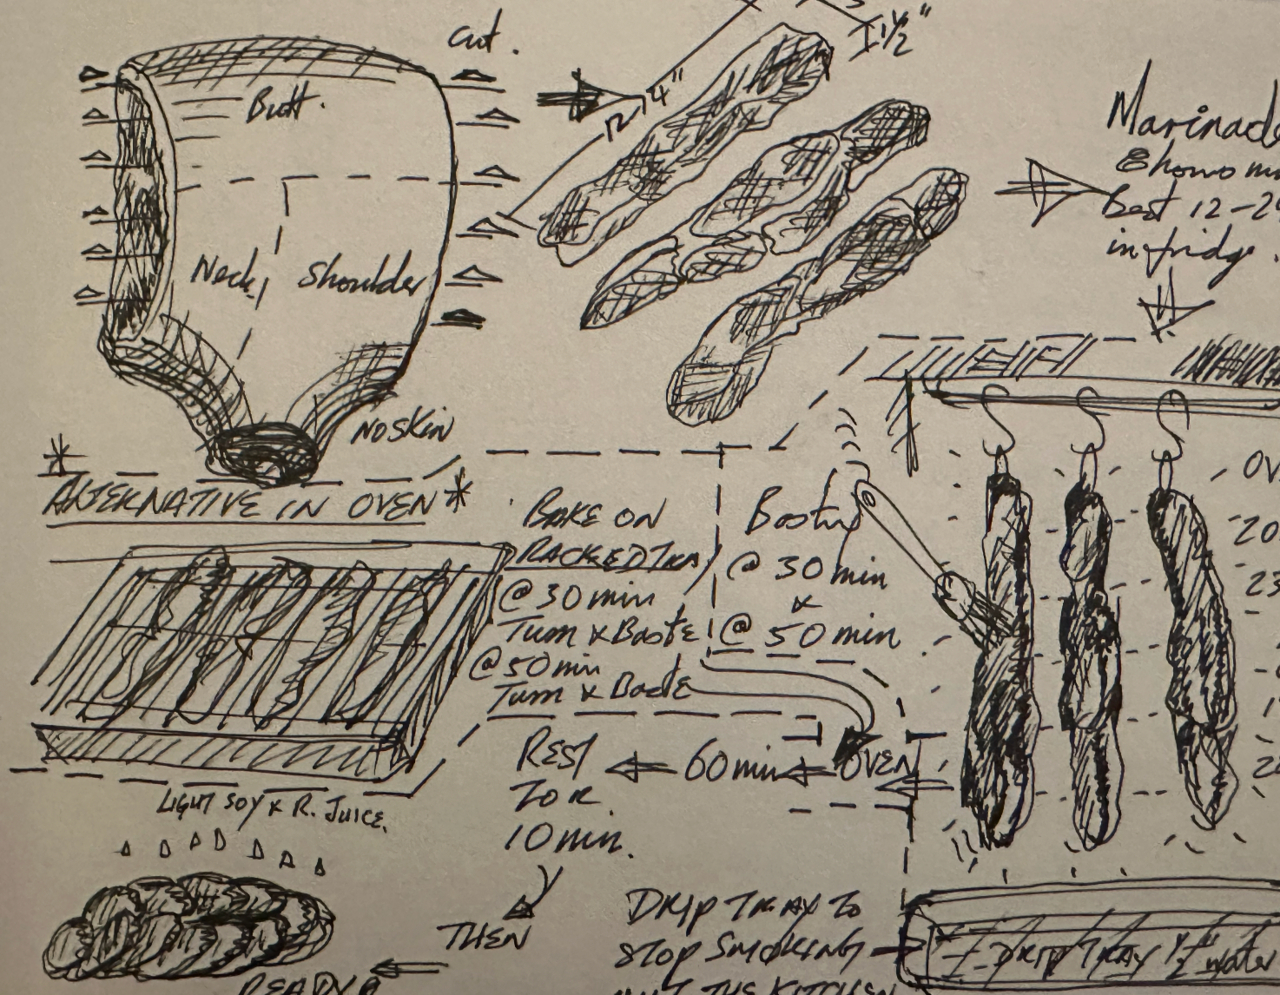 cut.
Butt.
Neck
Shoulder
No Skin
12/14"
1½"
Marinade
8 hours
Best 12-2
in fridge.
* ALTERNATIVE IN OVEN *
BAKE ON
RACKED TRAY
@ 30 min
Turn x Baste
@ 50 min
Turn x Baste
Basting
@ 30 min
x
@ 50 min
OVEN
60 min
REST
FOR
10 min.
THEN
LIGHT SOY x R. JUICE.
READY
DRIP TRAY TO
STOP SMOKING
OUT THE KITCHEN
DRIP TRAY ½" water
OV
20
23
2